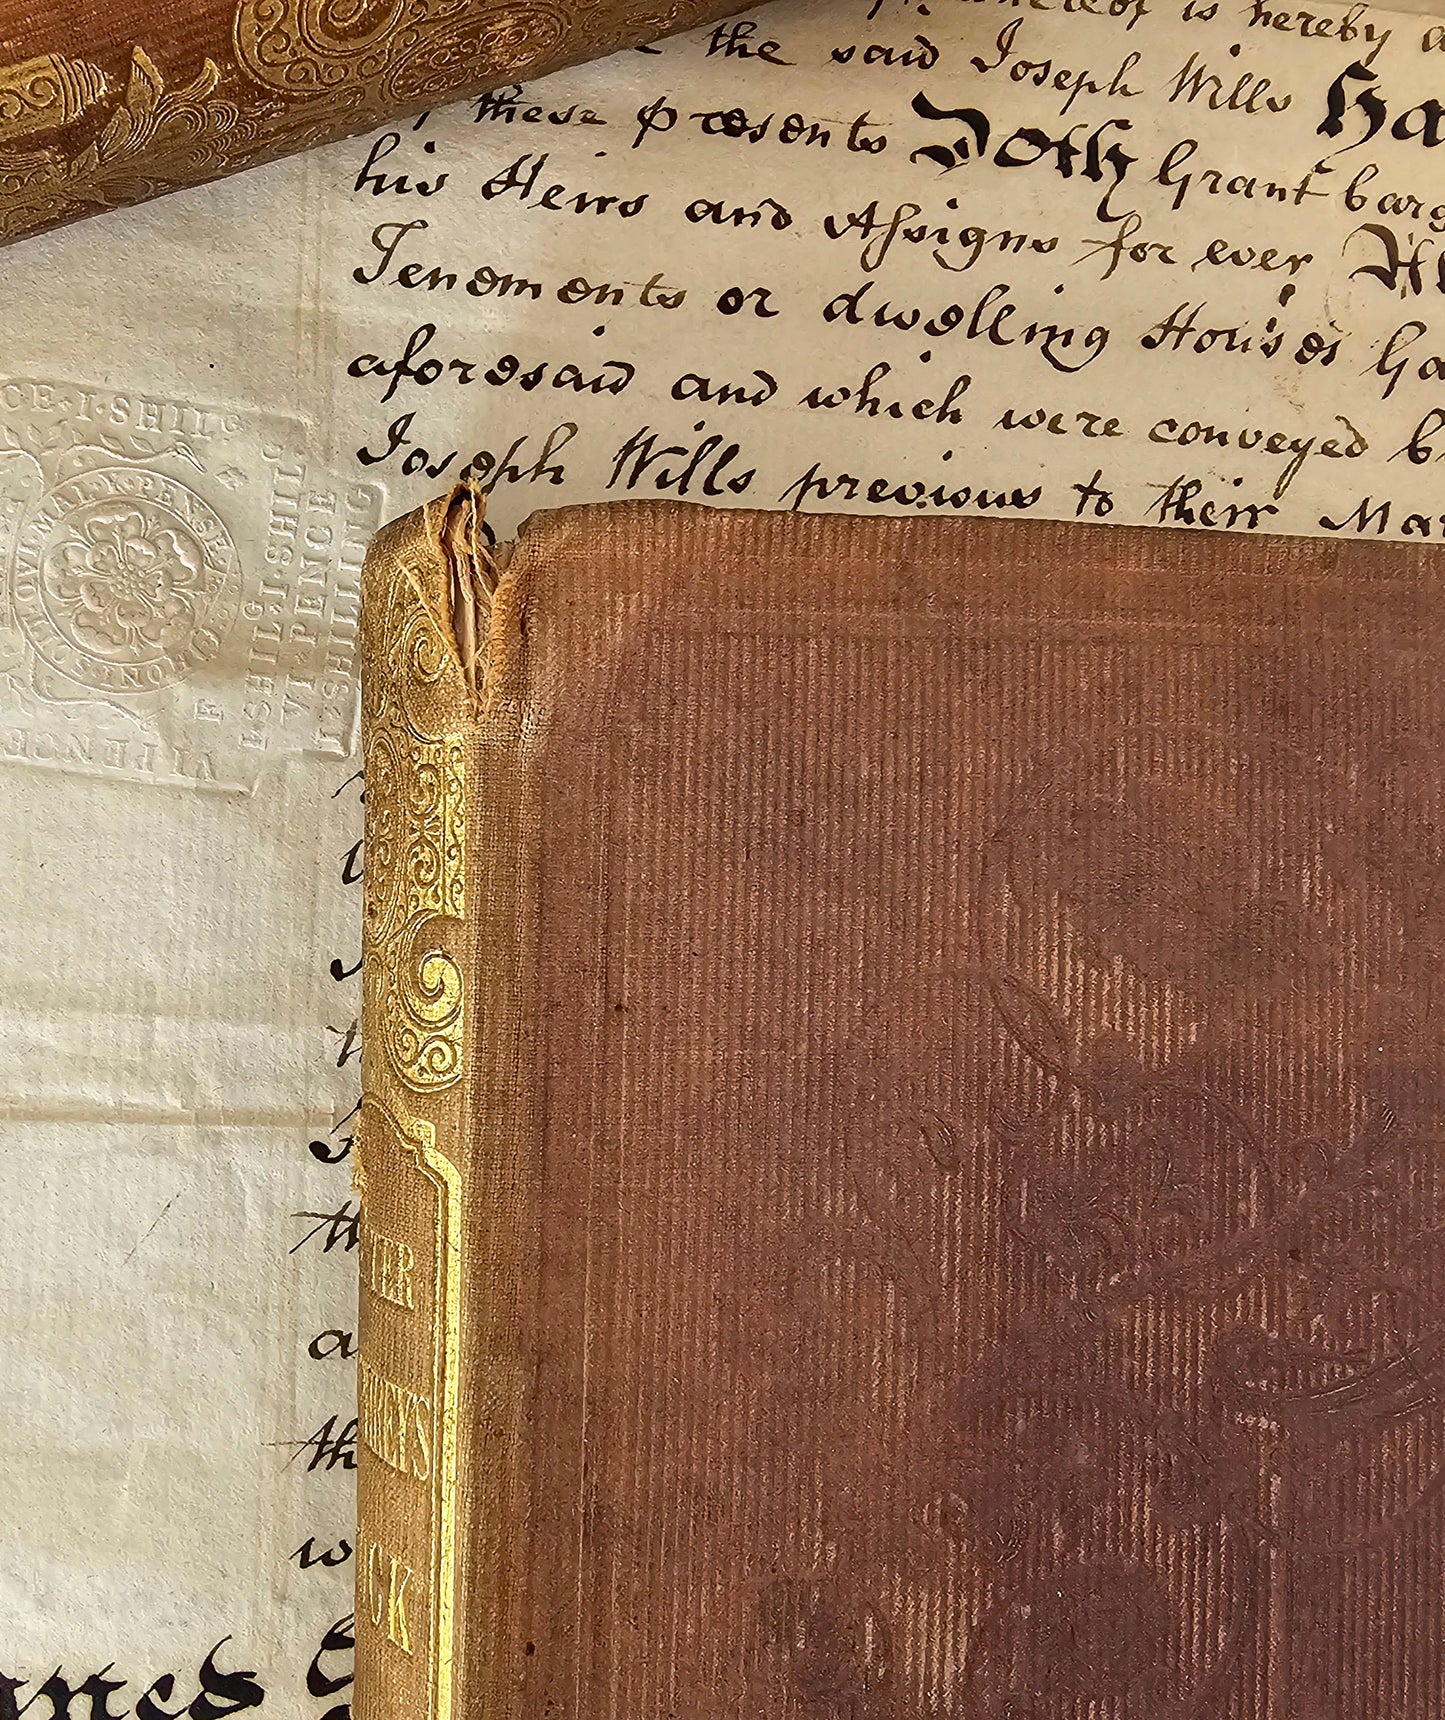 hereof is hereby
the said Joseph Wills Ha
these presents Doth Grant barg
his Heirs and Assigns for ever
Tenements or dwelling Houses Ga
aforesaid and which were conveyed b
Joseph Wills previous to their Mar
I·SHIL
HONI·SOIT·QUI·MAL·Y·PENSE
I SHILG·I SHIL
VI PENCE
I SHILLING
VI PENCE
th
a
th
w
TER
REY'S
CK